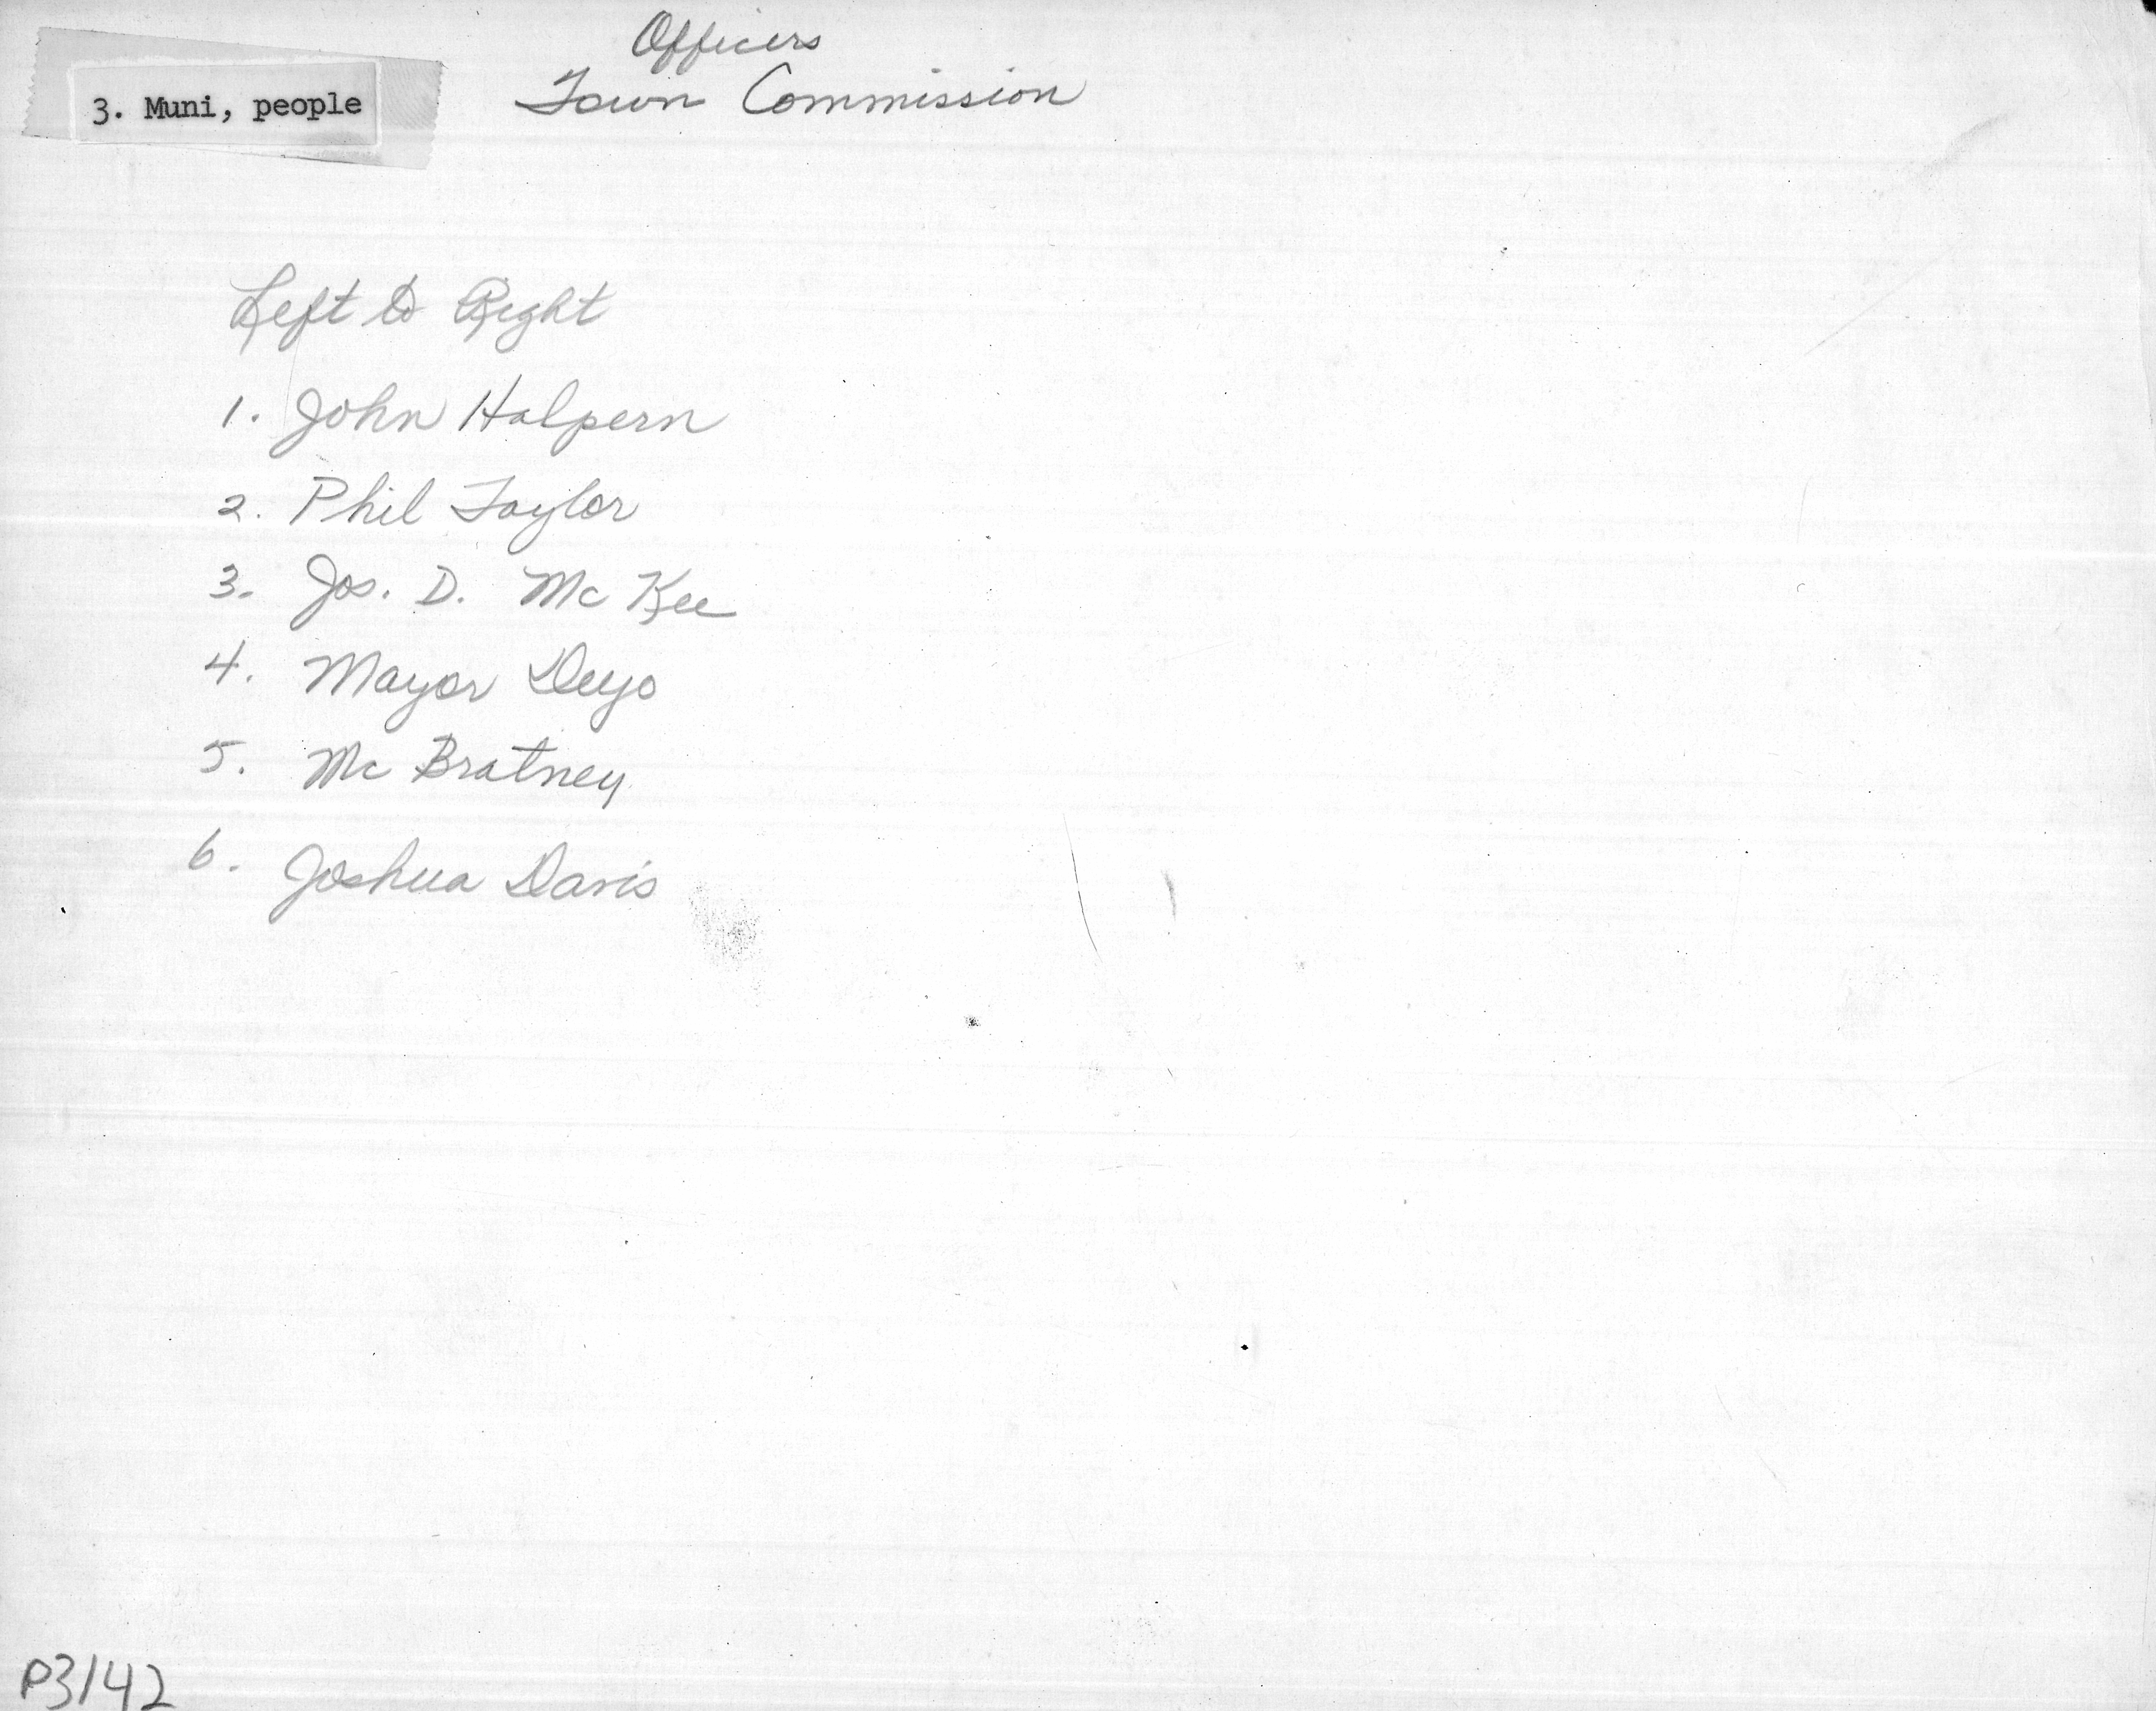 Officers
3. Muni, people
Town Commission
Left to Right
1. John Halpern
2. Phil Taylor
3. Jos. D. Mc Kee
4. Mayor Deyo
5. Mc Bratney
6. Joshua Davis
P3142